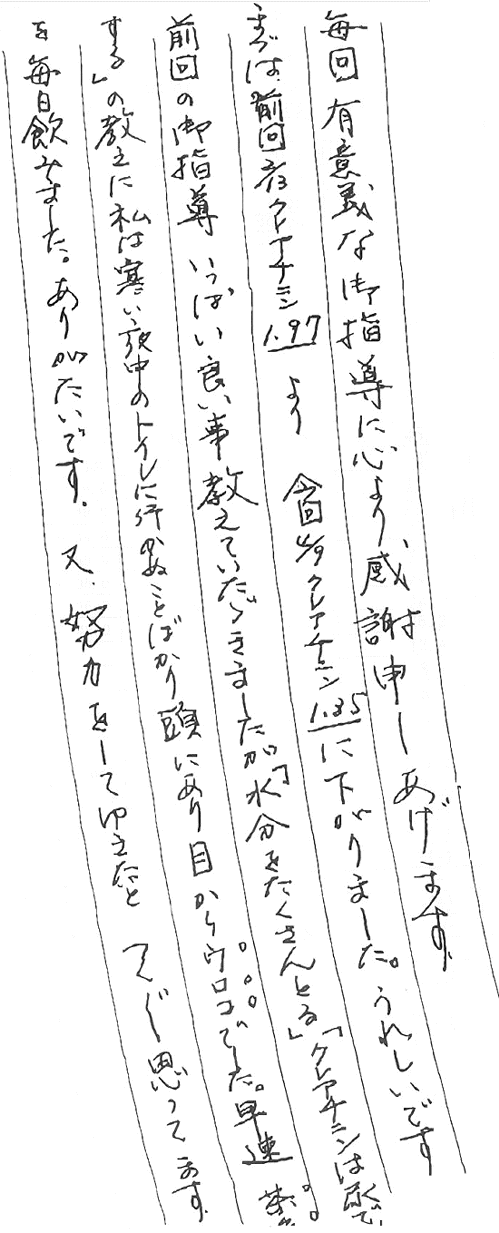 毎回有意義な御指導に心より感謝申しあげます。
まずは、前回 クレアチニン1.97より 今回 クレアチニン1.35に下がりました。うれしいです
前回の御指導 いっぱい良い事教えていただきましたが「水分をたくさんとる」「クレアチニンは尿で
する」の教えに私は寒い夜中のトイレに行かぬことばかり頭にあり目からウロコでした。早速
を毎日飲みました。ありがたいです。又、努力をして 思ってます。